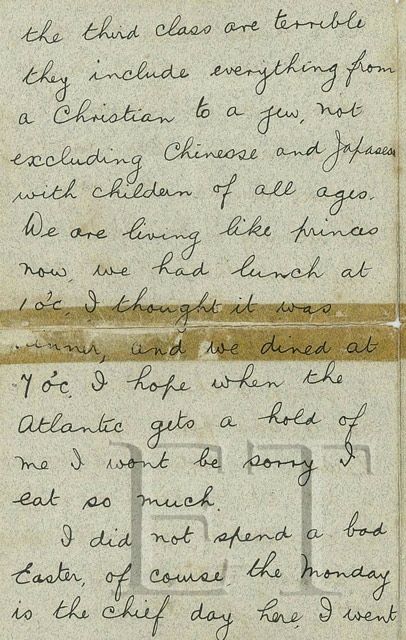 the third class are terrible
they include everything from
a Christian to a jew, not
excluding Chinesse and Japasese
with childern of all ages.
We are living like princes
now, we had lunch at
1 o'c. I thought it was
dinner, and we dined at
7 o'c. I hope when the
Atlantic gets a hold of
me I wont be sorry I
eat so much.
I did not spend a bad
Easter, of course, the Monday
is the chief day here, I went
ET